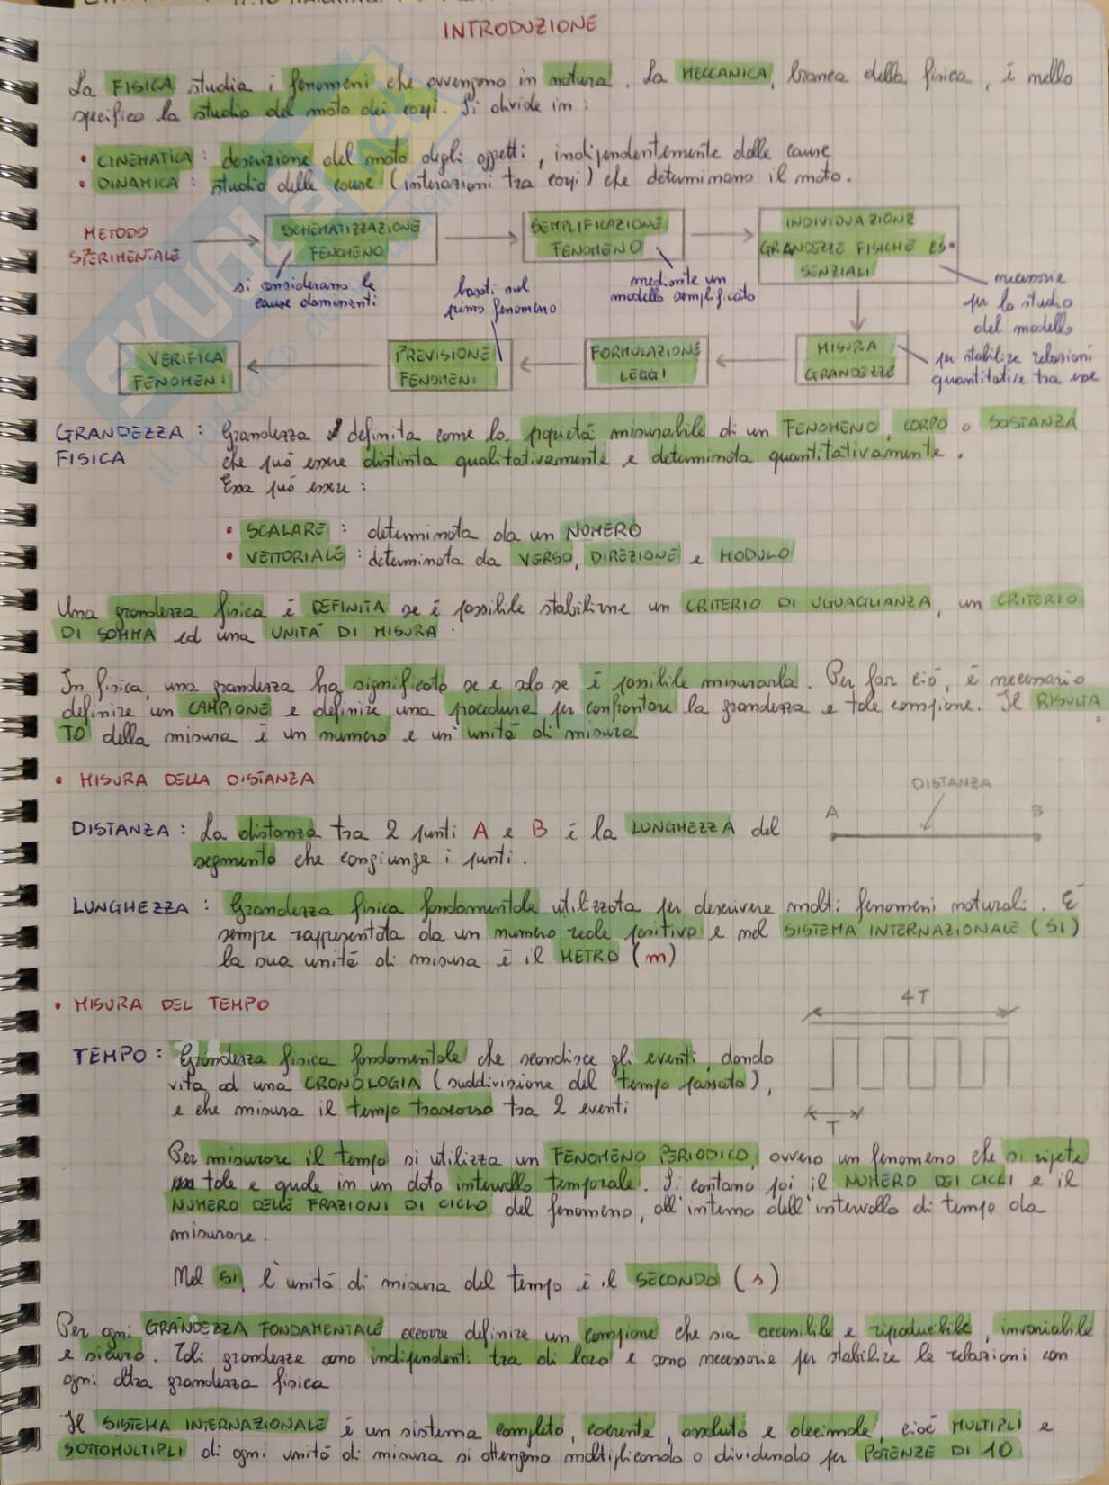 INTRODUZIONE
La FISICA studia i fenomeni che avvengono in natura. La MECCANICA, branca della fisica, è nello
specifico lo studio del moto dei corpi. Si divide in:
• CINEMATICA: descrizione del moto degli oggetti, indipendentemente dalle cause
• DINAMICA: studio delle cause (interazioni tra corpi) che determinano il moto.
METODO
SPERIMENTALE
SCHEMATIZZAZIONE
FENOMENO
si considerano le
cause dominanti
SEMPLIFICAZIONE
FENOMENO
mediante un
modello semplificato
INDIVIDUAZIONE
GRANDEZZE FISICHE ES-
SENZIALI
necessarie
per lo studio
del modello
MISURA
GRANDEZZE
per stabilire relazioni
quantitative tra esse
FORMULAZIONE
LEGGI
PREVISIONE
FENOMENI
basati sul
primo fenomeno
VERIFICA
FENOMENI
GRANDEZZA FISICA: Grandezza è definita come la proprietà misurabile di un FENOMENO, CORPO o SOSTANZA
che può essere distinta qualitativamente e determinata quantitativamente.
Essa può essere:
• SCALARE: determinata da un NUMERO
• VETTORIALE: determinata da VERSO, DIREZIONE e MODULO
Una grandezza fisica è DEFINITA se è possibile stabilirne un CRITERIO DI UGUAGLIANZA, un CRITERIO
DI SOMMA ed una UNITÀ DI MISURA.
In fisica, una grandezza ha significato se e solo se è possibile misurarla. Per far ciò, è necessario
definire un CAMPIONE e definire una procedura per confrontare la grandezza e tale campione. Il RISULTA-
TO della misura è un numero e un'unità di misura
• MISURA DELLA DISTANZA
DISTANZA
A B
DISTANZA: La distanza tra 2 punti A e B è la LUNGHEZZA del
segmento che congiunge i punti.
LUNGHEZZA: Grandezza fisica fondamentale utilizzata per descrivere molti fenomeni naturali. È
sempre rappresentata da un numero reale positivo e nel SISTEMA INTERNAZIONALE (SI)
la sua unità di misura è il METRO (m)
• MISURA DEL TEMPO
4T
T
TEMPO: Grandezza fisica fondamentale che scandisce gli eventi, dando
vita ad una CRONOLOGIA (suddivisione del tempo passato),
e che misura il tempo trascorso tra 2 eventi
Per misurare il tempo si utilizza un FENOMENO PERIODICO, ovvero un fenomeno che si ripete
tale e quale in un dato intervallo temporale. Si contano poi il NUMERO DEI CICLI e il
NUMERO DELLE FRAZIONI DI CICLO del fenomeno, all'interno dell'intervallo di tempo da
misurare.
Nel SI, l'unità di misura del tempo è il SECONDO (s)
Per ogni GRANDEZZA FONDAMENTALE occorre definire un campione che sia accessibile e riproducibile, invariabile
e sicuro. Tali grandezze sono indipendenti tra di loro e sono necessarie per stabilire le relazioni con
ogni altra grandezza fisica
Il SISTEMA INTERNAZIONALE è un sistema completo, coerente, assoluto e decimale, cioè MULTIPLI e
SOTTOMULTIPLI di ogni unità di misura si ottengono moltiplicando o dividendo per POTENZE DI 10